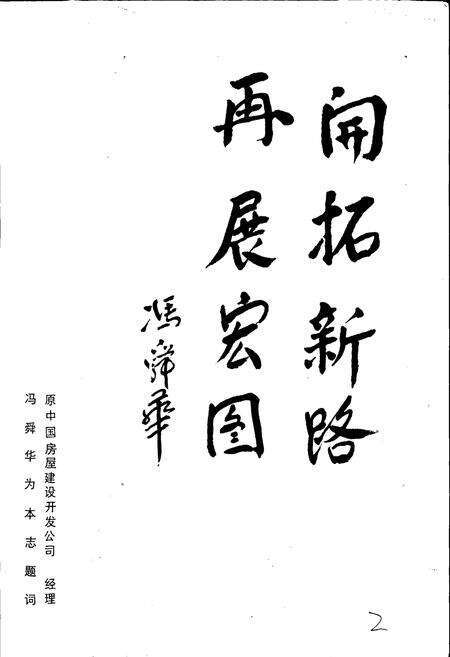 开拓新路
再展宏图
馮舜華
原中国房屋建设开发公司 经理
冯舜华为本志题词
2